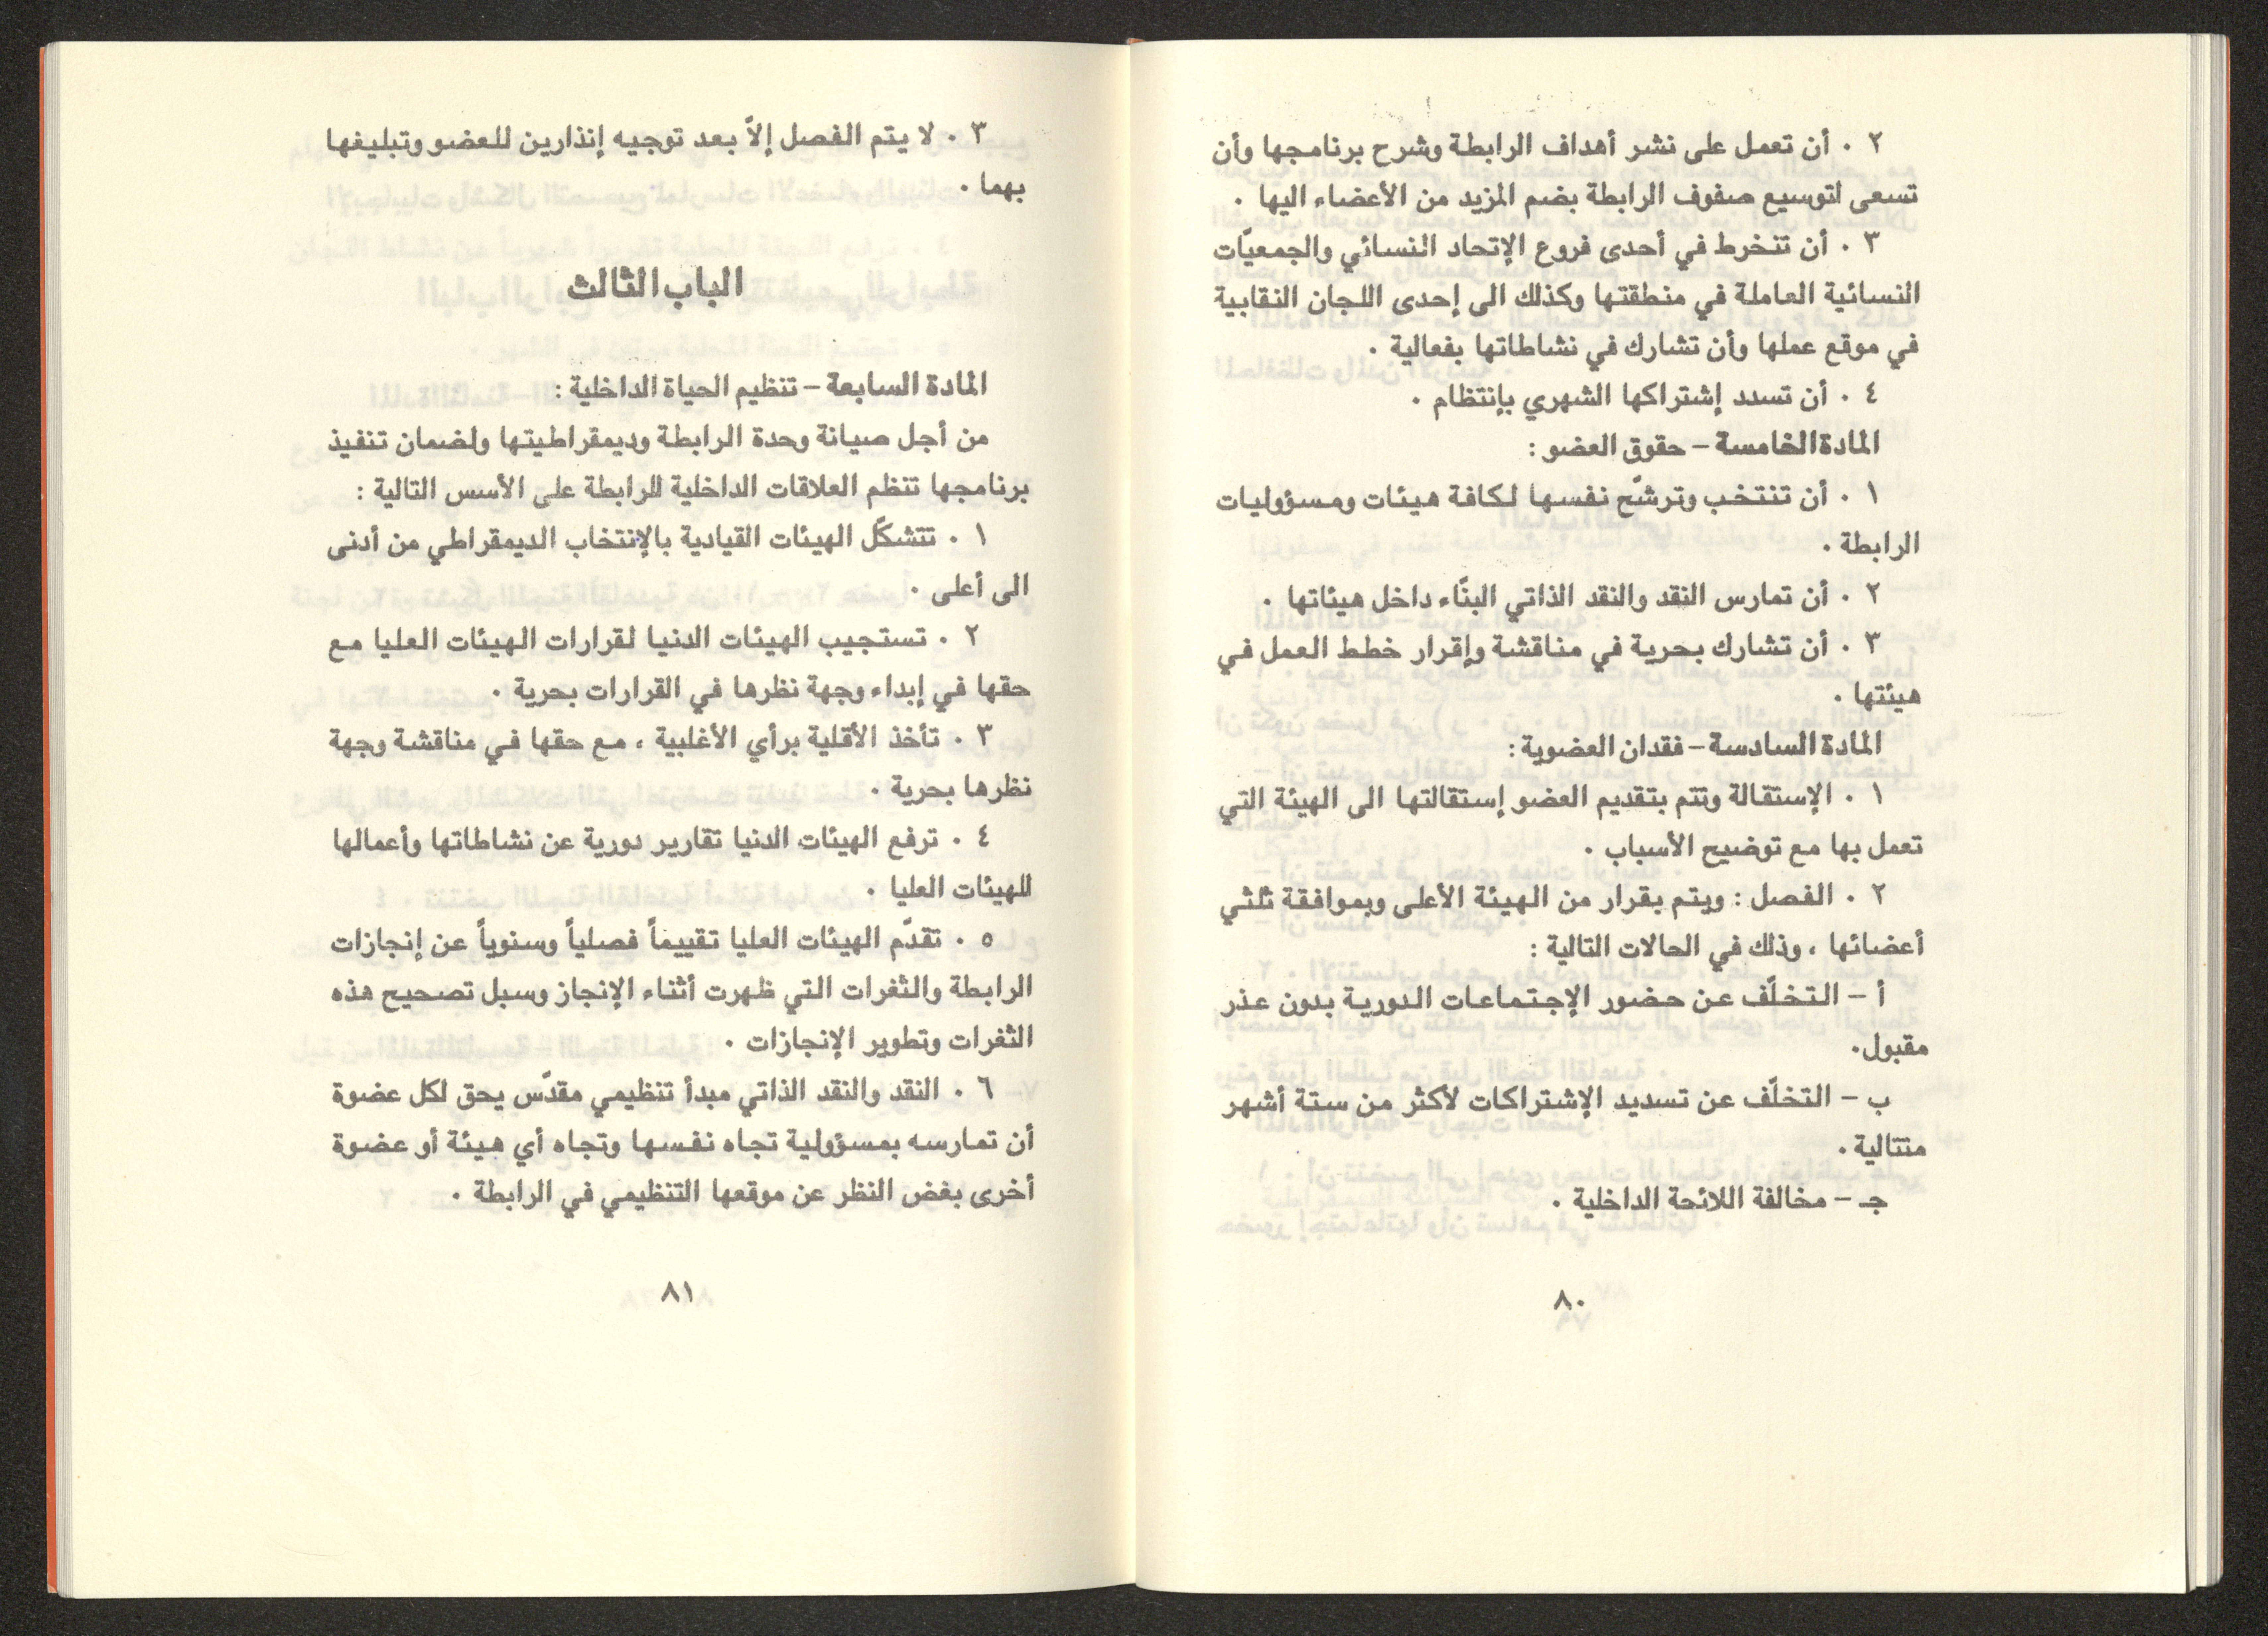 ٢ ٠ أن تعمل على نشر أهداف الرابطة وشرح برنامجها وأن
تسعى لتوسيع صفوف الرابطة بضم المزيد من الأعضاء اليها ٠
٣ ٠ أن تنخرط في أحدى فروع الإتحاد النسائي والجمعيّات
النسائية العاملة في منطقتها وكذلك الى إحدى اللجان النقابية
في موقع عملها وأن تشارك في نشاطاتها بفعالية ٠
٤ ٠ أن تسدد إشتراكها الشهري بإنتظام ٠
المادة الخامسة – حقوق العضو :
١ ٠ أن تنتخب وترشّح نفسها لكافة هيئات ومسؤوليات
الرابطة ٠
٢ ٠ أن تمارس النقد والنقد الذاتي البنّاء داخل هيئاتها ٠
٣ ٠ أن تشارك بحرية في مناقشة وإقرار خطط العمل في
هيئتها ٠
المادة السادسة – فقدان العضوية :
١ ٠ الإستقالة وتتم بتقديم العضو إستقالتها الى الهيئة التي
تعمل بها مع توضيح الأسباب ٠
٢ ٠ الفصل : ويتم بقرار من الهيئة الأعلى وبموافقة ثلثي
أعضائها ، وذلك في الحالات التالية :
أ – التخلّف عن حضور الإجتماعات الدورية بدون عذر
مقبول٠
ب – التخلّف عن تسديد الإشتراكات لأكثر من ستة أشهر
متتالية ٠
جـ – مخالفة اللائحة الداخلية ٠
٨٠
٣ ٠ لا يتم الفصل إلاّ بعد توجيه إنذارين للعضو وتبليغها
بهما ٠
الباب الثالث
المادة السابعة – تنظيم الحياة الداخلية :
من أجل صيانة وحدة الرابطة وديمقراطيتها ولضمان تنفيذ
برنامجها تنظم العلاقات الداخلية للرابطة على الأسس التالية :
١ ٠ تتشكّل الهيئات القيادية بالإنتخاب الديمقراطي من أدنى
الى أعلى ٠
٢ ٠ تستجيب الهيئات الدنيا لقرارات الهيئات العليا مع
حقها في إبداء وجهة نظرها في القرارات بحرية ٠
٣ ٠ تأخذ الأقلية برأي الأغلبية ، مع حقها في مناقشة وجهة
نظرها بحرية ٠
٤ ٠ ترفع الهيئات الدنيا تقارير دورية عن نشاطاتها وأعمالها
للهيئات العليا ٠
٥ ٠ تقدّم الهيئات العليا تقييماً فصلياً وسنوياً عن إنجازات
الرابطة والثغرات التي ظهرت أثناء الإنجاز وسبل تصحيح هذه
الثغرات وتطوير الإنجازات ٠
٦ ٠ النقد والنقد الذاتي مبدأ تنظيمي مقدّس يحق لكل عضوة
أن تمارسه بمسؤولية تجاه نفسها وتجاه أي هيئة أو عضوة
أخرى بغض النظر عن موقعها التنظيمي في الرابطة ٠
٨١